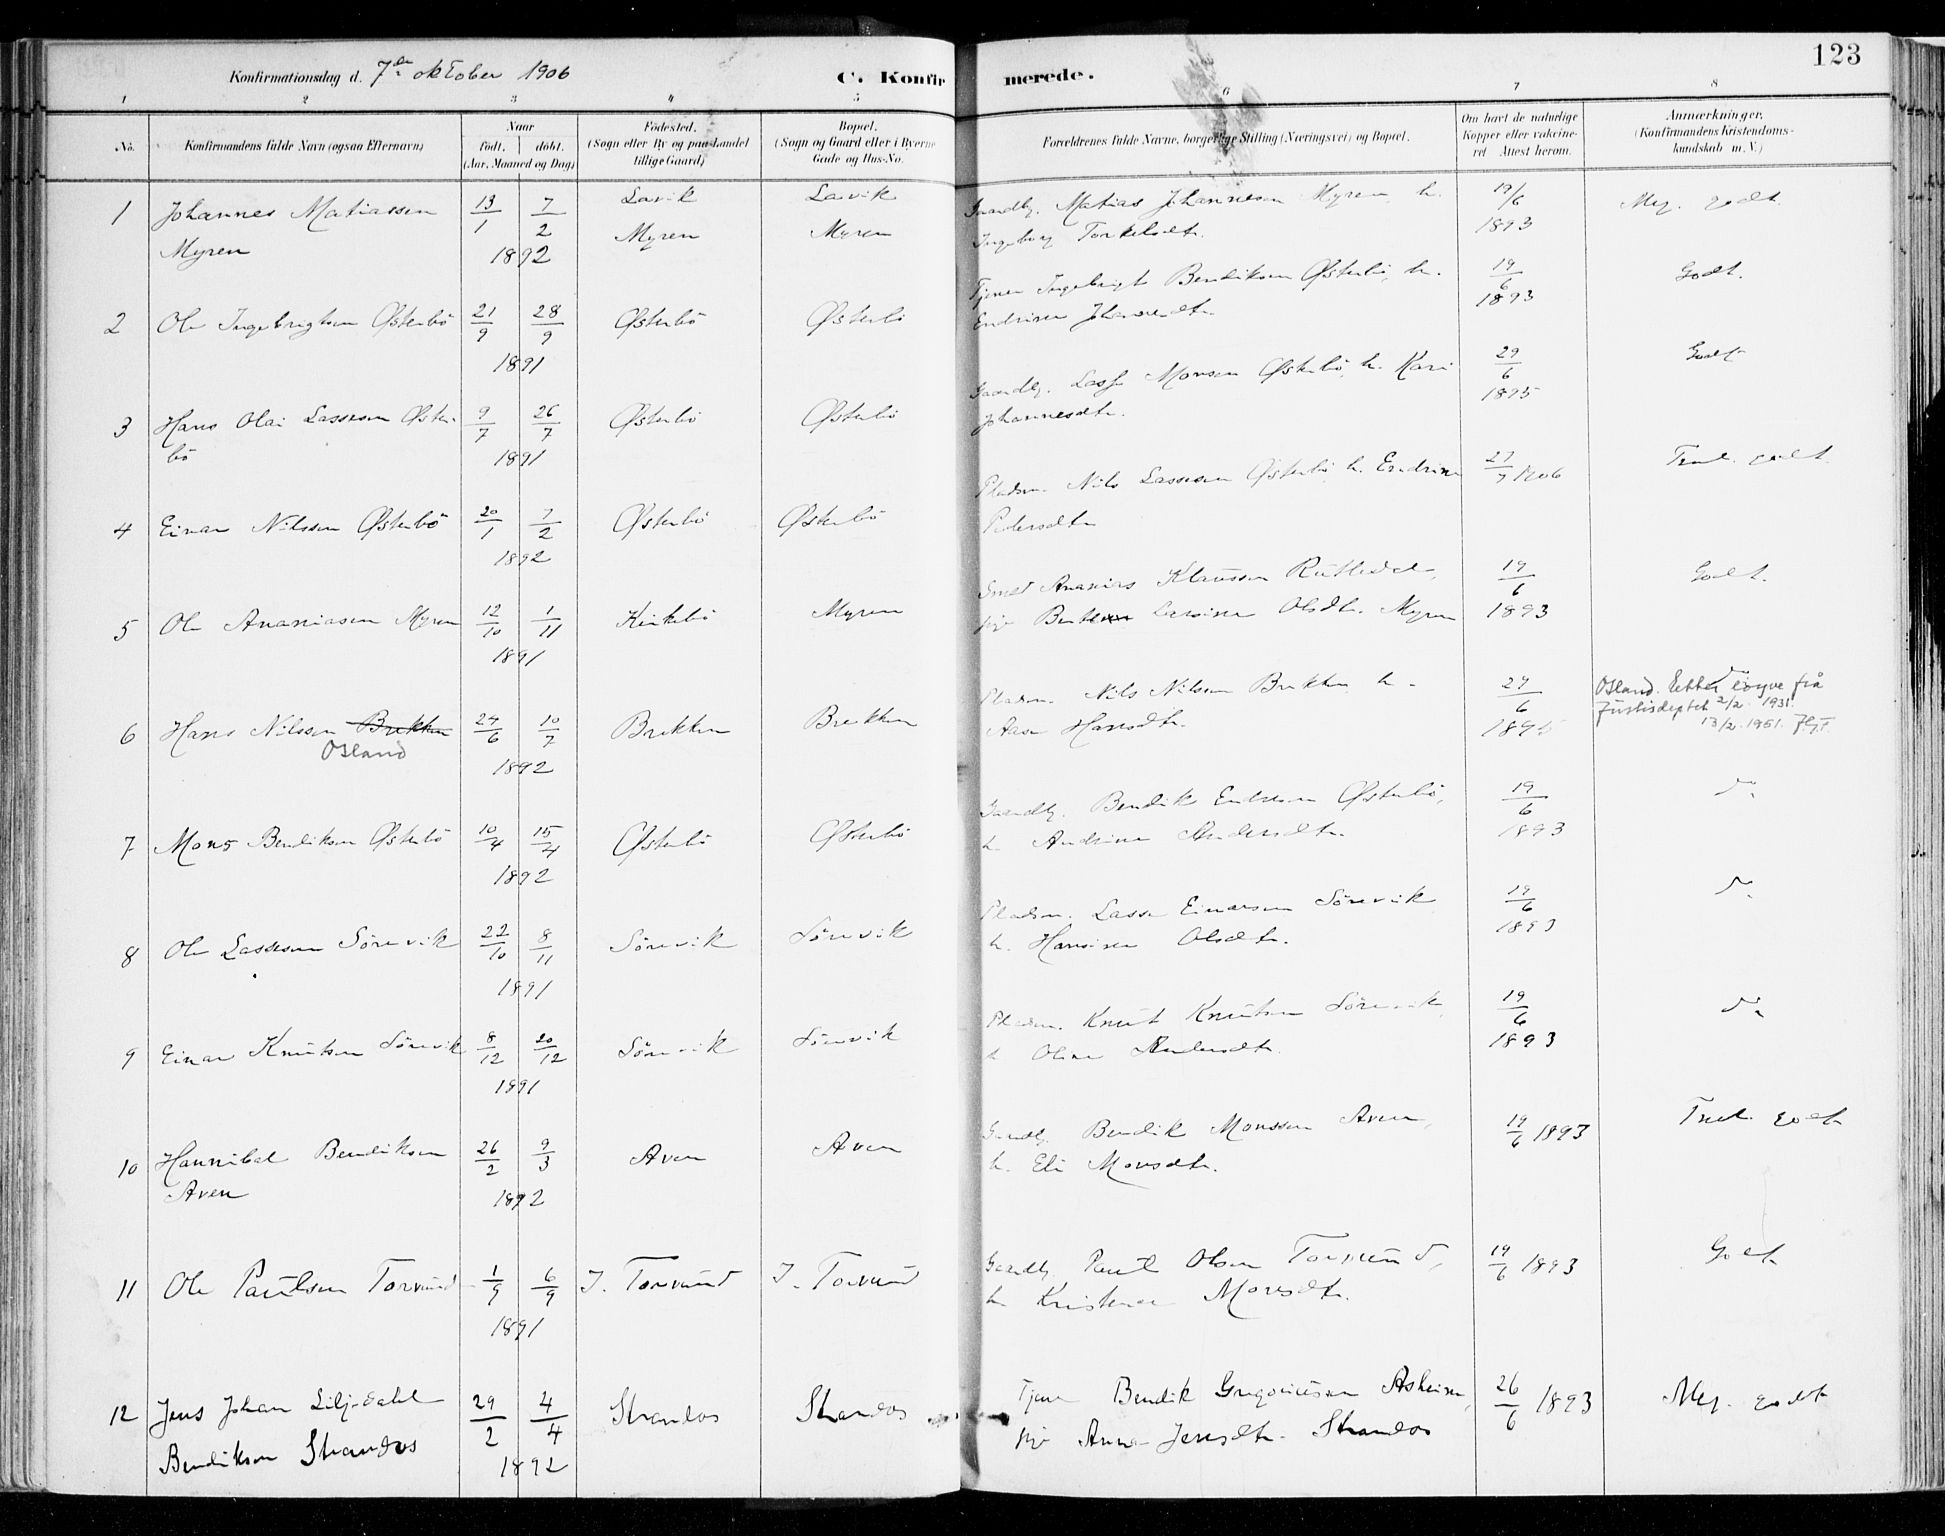 123
Konfirmationsdag d. 7de oktober 1906
C. Konfirmerede.
1 2 3 4 5 6 7 8
No.
Konfirmandens fulde Navn (ogsaa Efternavn)
Naar
født. døbt.
(Aar, Maaned og Dag)
Fødested.
(Sogn eller By og paa Landet
tillige Gaard)
Bopæl.
(Sogn og Gaard eller i Byerne
Gade og Hus-No.
Forældrenes fulde Navne, borgerlige Stilling (Næringsvei) og Bopæl.
Om havt de naturlige
Kopper eller vakcine-
ret Attest herom.
Anmærkninger.
(Konfirmandens Kristendoms-
kundskab m. V.)
1 Johannes Matiassen 13/1 7/2 Lavik Lavik Gaardbr. Matias Johannesen Myren, h. 19/6 Meg. godt.
Myren 1892 Myren Myren Ingeborg Torkelsdtr. 1893
2 Ole Ingebrigtsen Østerbö 21/9 28/9 Østerbö Østerbö Tjener Ingebrigt Bendiksen Østerbö, h. 19/6 Godt.
1891 Endrine Johannesdtr. 1893
3 Hans Olai Lassesen Øster- 9/7 26/7 Østerbö Østerbö Gaardbr. Lasse Monsen Østerbö, h. Kari 29/6 Godt
bö 1891 Johannesdtr. 1895
4 Einar Nilssen Østerbö 20/1 7/2 Østerbö Østerbö Pladsm. Nils Lassesen Østerbö h. Endrine 27/7 1906 Temel. godt.
1892 Pedersdtr
5 Ole Ananiasen Myren 12/10 1/11 Kirkebö Myren Smed Ananias Klaussen Rutledal, 19/6 Godt.
1891 pige Larsine Olsdtr. Myren 1893
6 Hans Nilssen Brekken 24/6 10/7 Brekken Brekken Pladsm. Nils Nilssen Brekken h. 27/6 Osland. Etter löyve frå
Osland 1892 Aase Hansdtr. Justisdeptet 2/2 1931.
13/2 1951.
7 Mons Bendiksen Østerbö 10/4 15/4 Østerbö Østerbö Gaardbr. Bendik Endresen Østerbö, 19/6 do.
1892 h. Andrine Andersdtr. 1893
8 Ole Lassesen Sörevik 22/10 8/11 Sörevik Sörevik Pladsm. Lasse Einarsen Sörevik 19/6 do.
1891 h. Hansine Olsdtr. 1893
9 Einar Knutsen Sörevik 8/12 20/12 Sörevik Sörevik Pladsm. Knut Knutsen Sörevik, 19/6 do.
1891 h. Oline Andersdtr. 1893
10 Hannibal Bendiksen 26/2 9/3 Aven Aven Gaardbr. Bendik Monssen Aven, 19/6 1893 Temel. godt.
Aven 1892 h. Eli Monsdtr.
11 Ole Paulsen Torvund 1/9 6/9 I. Torvund I. Torvund Gaardbr. Paul Olsen Torvund, 19/6 1893 Godt.
1891 h. Monsdtr.
12 Jens Johan Liljedahl 29/2 4/4 Strandos Strandos Tjener Bendik Gregoriussen Asheim, 26/6 1893 Meg. godt
Bendiksen Strandos 1892 pige Anna Jensdtr. Strandos